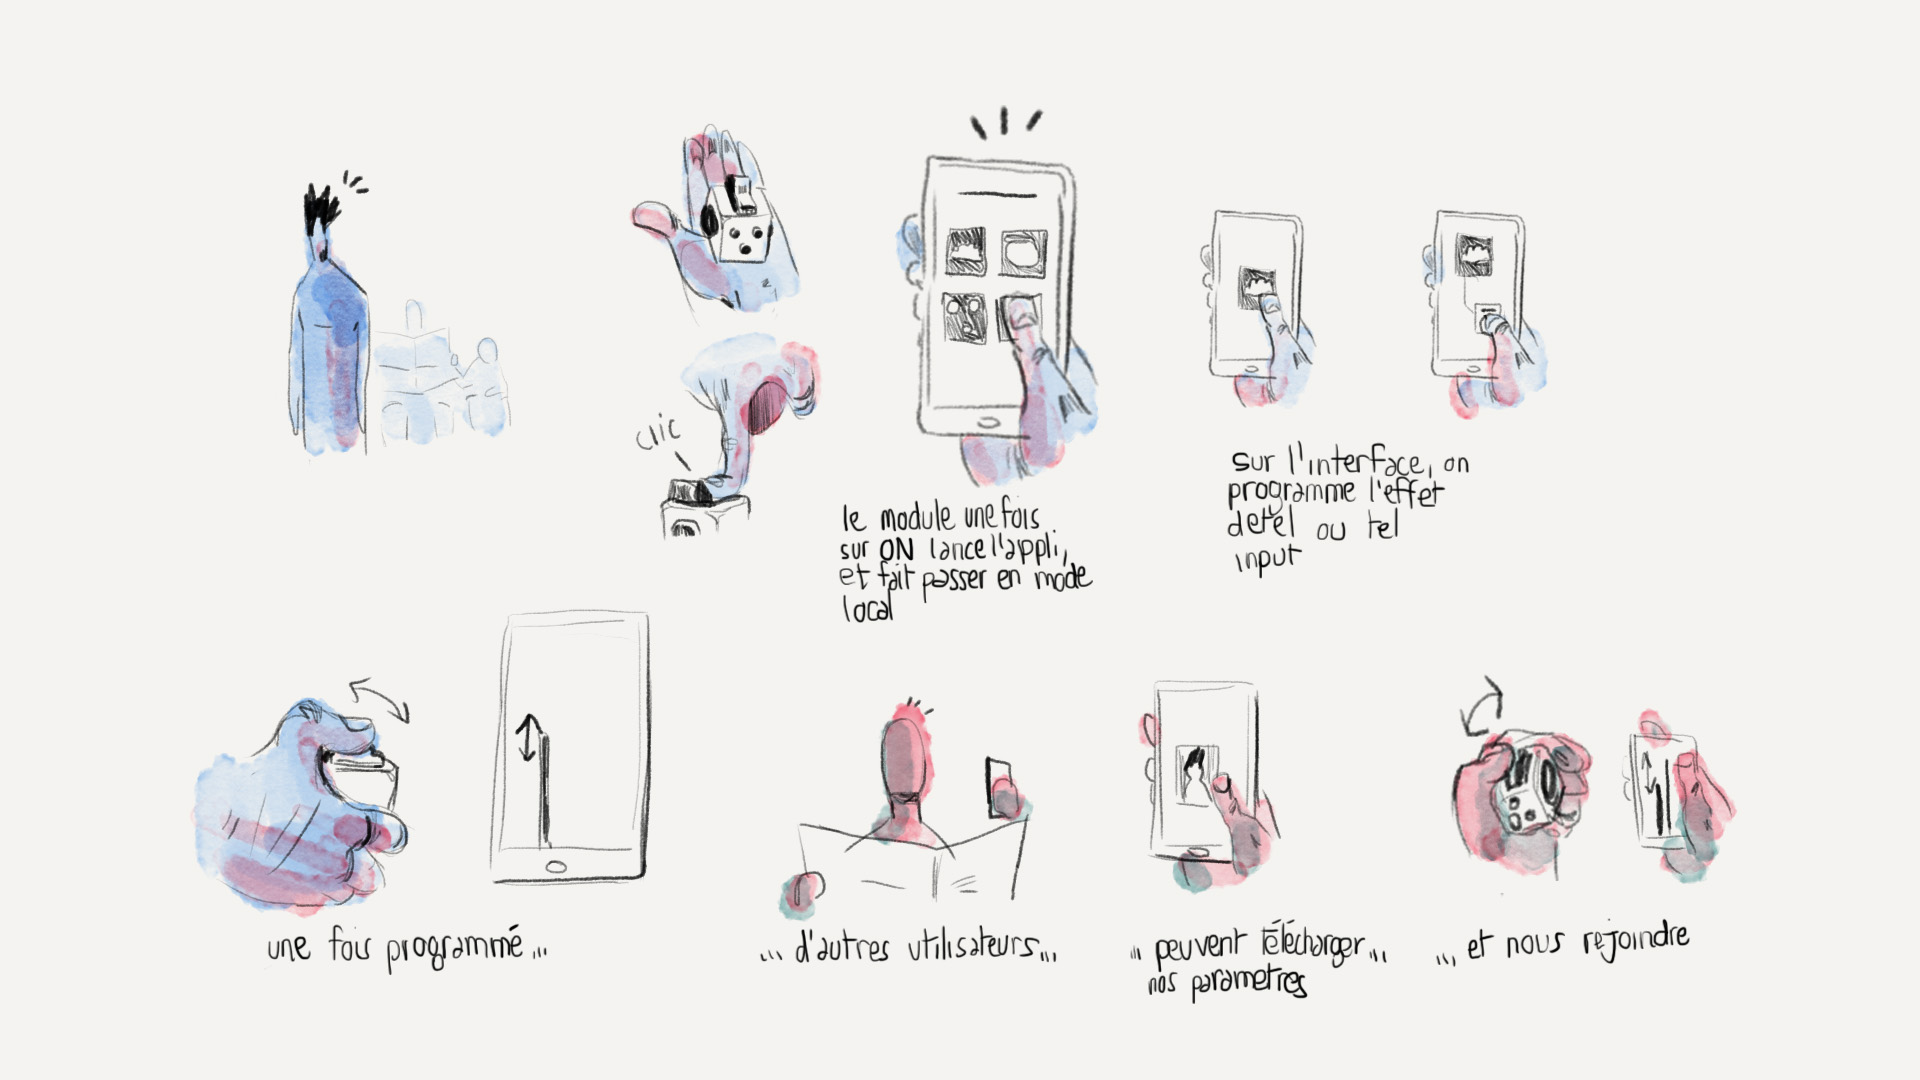 clic
le module une fois
sur ON lance l'appli,
et fait passer en mode
local
sur l'interface, on
programme l'effet
de tel ou tel
input
une fois programmé...
... d'autres utilisateurs...
... peuvent télécharger...
nos parametres
... et nous rejoindre